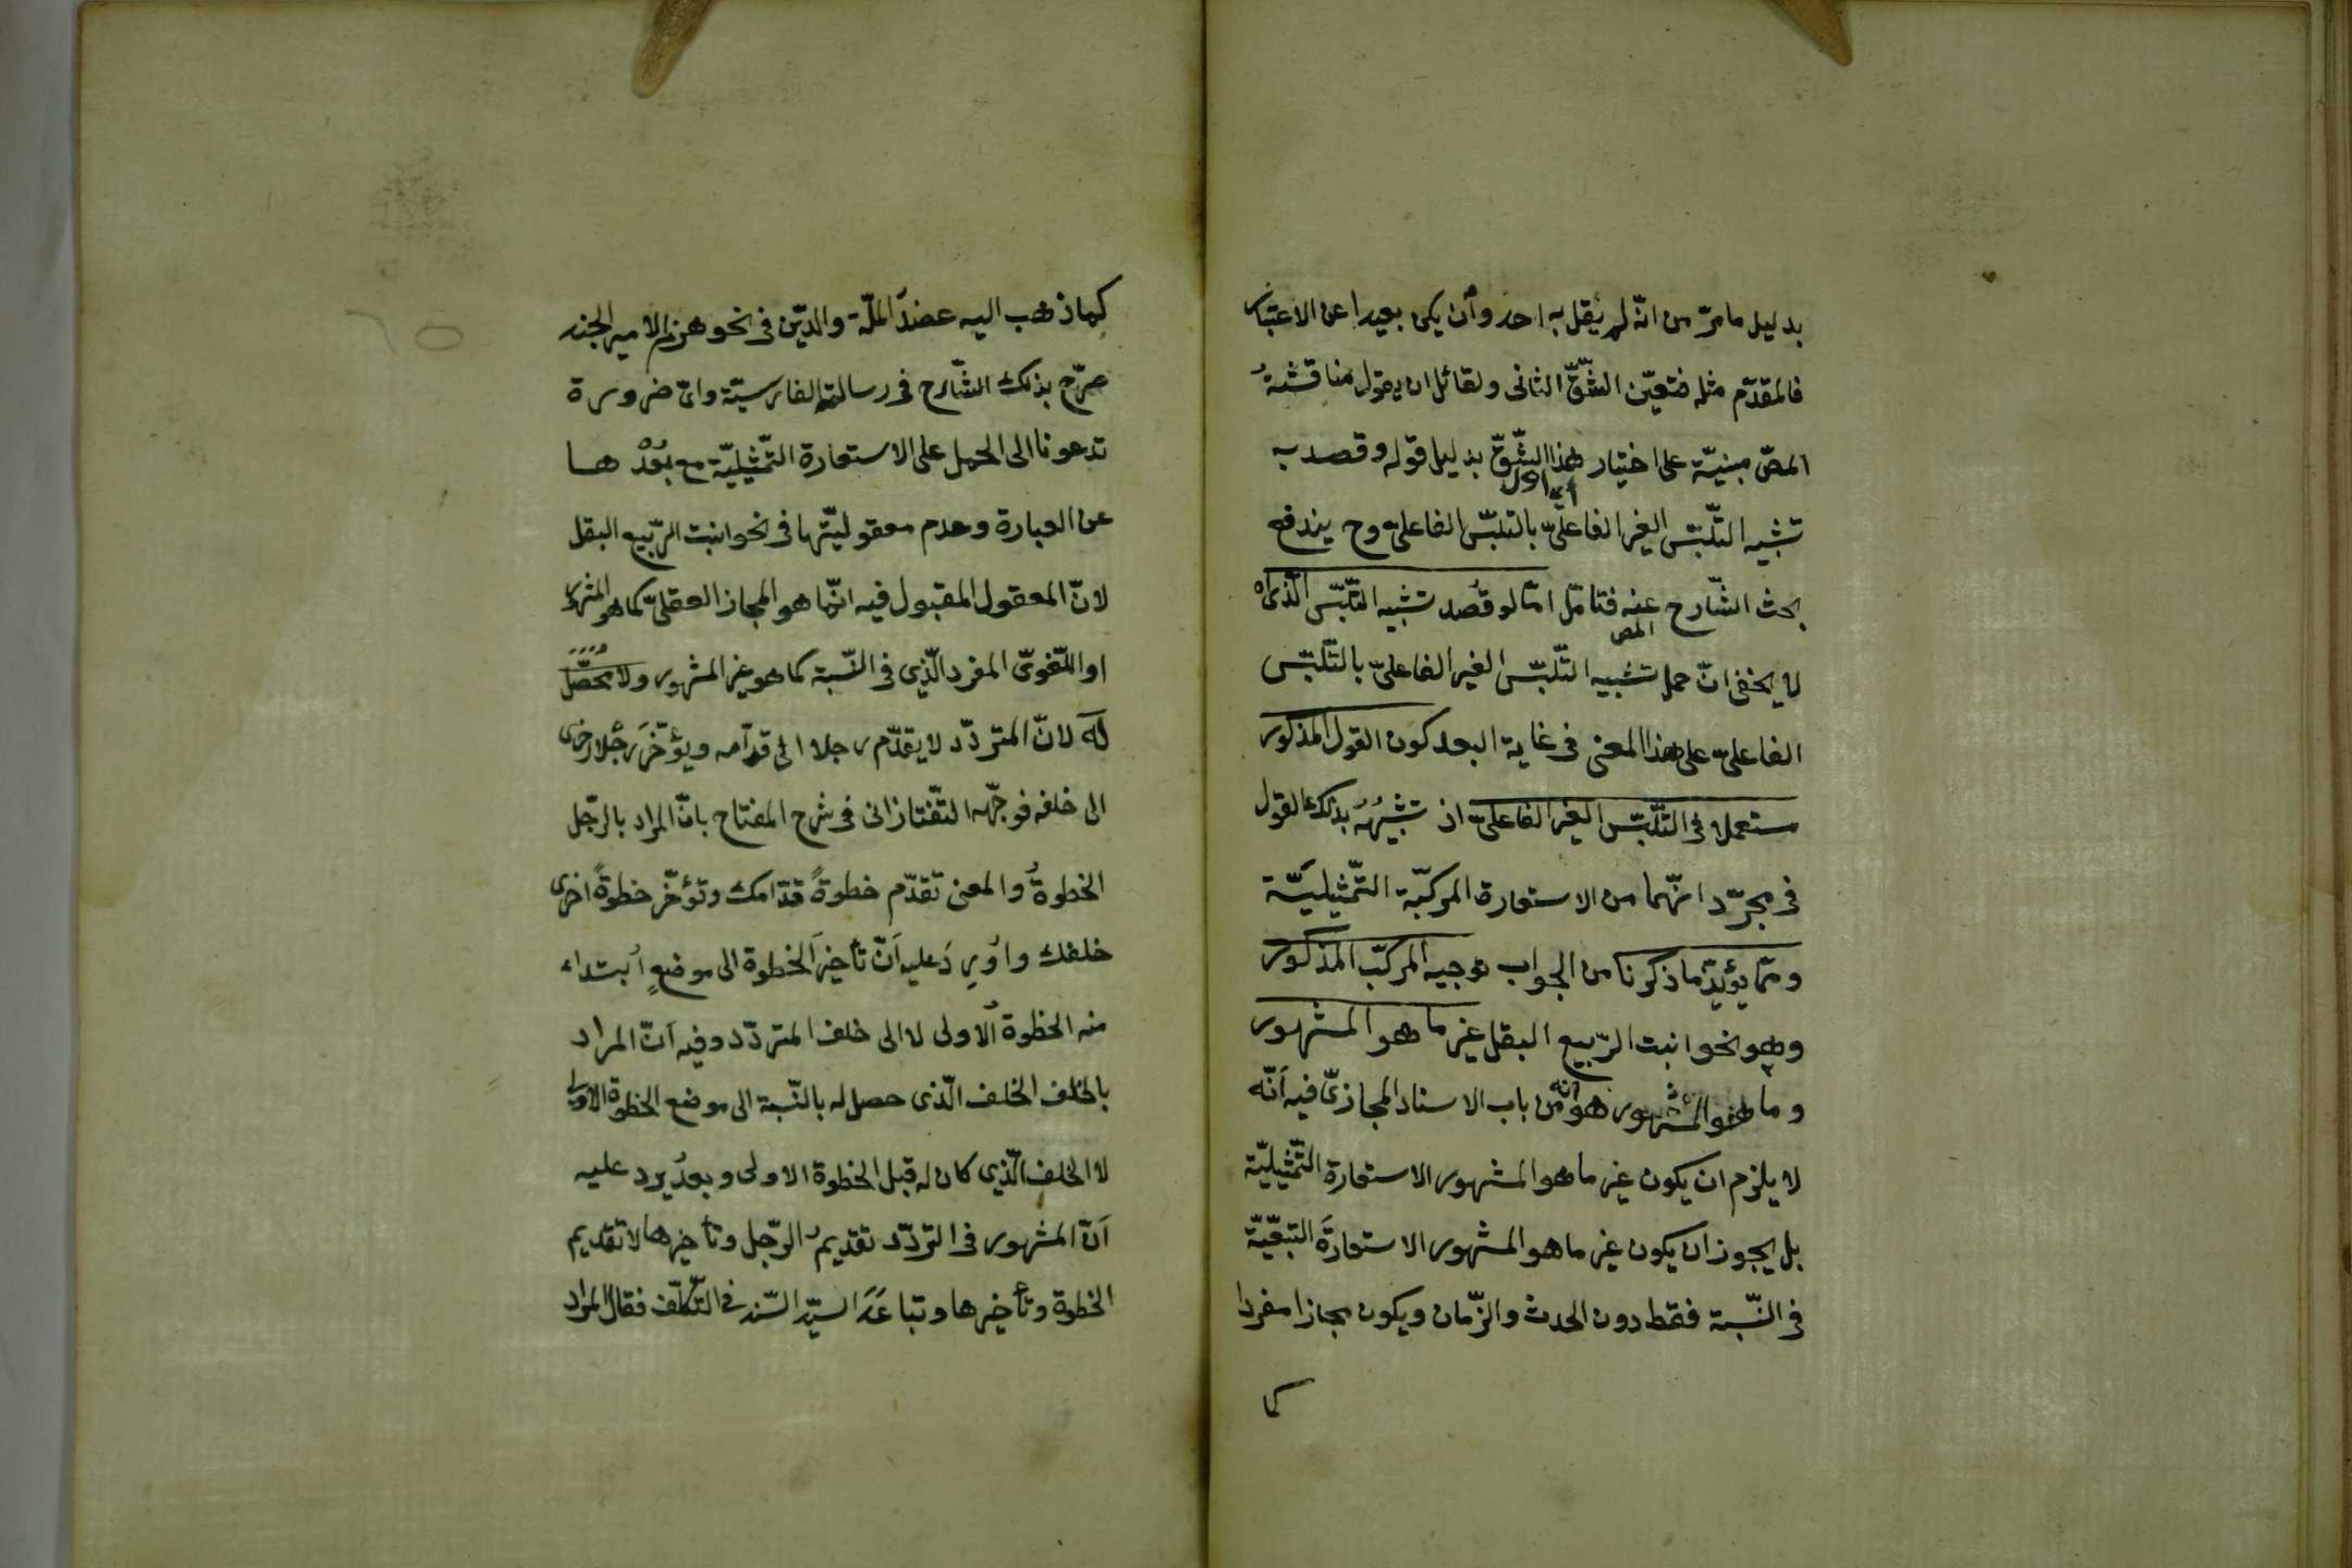 بدليل ما مرّ من انّه لم يقل به احد وأن يكن بعيدا عن الاعتبار
فالمقدّم مثله فتعيّن الشّقّ الثانى ولقائل ان يقول مناقشةُ
المصّ مبنيّة على اختيار هذا الشّقّ بدليل قوله وقصد به
اى الاول
تشبيه التّلبّس الغير الفاعلىّ بالتلبّس الفاعلىّ وح يندفع
بحث الشّارح عنه فتامّل امّا لو قُصد تشبيه التّلبّس الّذى اه
المص
لا يخفى انّ حمل تشبيه التّلبّس الغير الفاعلىّ بالتّلبّس
الفاعلىّ على هذا المعنى فى غاية البعد كون القول المذكور
مستعملا فى التّلبّس الغير الفاعلىّ اذ تشبيهُهُ بذلك القول
فى مجرّد انّهما من الاستعارة المركّبة التّمثيليّة
وممّا يؤيّد ما ذكرنا من الجواب توجيه المركّب المذكور
وهو نحو انبت الرّبيع البقل غير ما هو المشهور
وما هو المشهور هو انه من باب الاسناد المجازىّ فيه اَنّه
لا يلزم ان يكون غير ما هو المشهور الاستعارة التّمثيليّة
بل يجوز ان يكون غير ما هو المشهور الاستعارةَ التبعّيّة
فى النّسبة فقط دون الحدث والزّمان ويكون مجازا مفردا
كما
كما ذهب اليه عضدُ الملّة والدّين فى نحو هزم الامير الجند
صرّح بذلك الشّارح فى رسالته الفارسيّة واىّ ضرورة
تدعونا الى الحمل على الاستعارة التّمثيليّة مع بُعْدها
عن العبارة وعدم معقوليّتها فى نحو انبت الرّبيع البقل
لانّ المعقول المقبول فيه انّما هو المجاز العقلىّ كما هو المشهور
او اللّغوىّ المفرد الّذى فى النّسبة كما هو غير المشهور ولا محُصّل
له لانّ المتردّد لا يقدّم رجلا الى قدّامه ويؤخّرُ رجُلا اخرى
الى خلفه فوجّهه التّفتازانى فى شرح المفتاح بانّ المراد بالرّجل
الخطوةُ والمعنى تقدّم خطوةً قدّامك وتؤخّر خطوةً اخرى
خلفك واُورِدَ عليه اَنّ تأخيرَ الخطوة الى موضعٍ اُبتداء
منه الخطوة الاولى لا الى خلف المتردّد وفيه اَنّ المراد
بالخلف الخلف الّذى حصل له بالنّسبة الى موضع الخطوة الاولى
لا الخلف الّذى كان له قبل الخطوة الاولى وبعدُ يرد عليه
اَنّ المشهور فى التّردّد تقديمُ الرّجل وتأخيرها لا تقديم
الخطوة وتأخيرها وتباعَدَ السيّد السّند فى التّكلّف فقال المراد